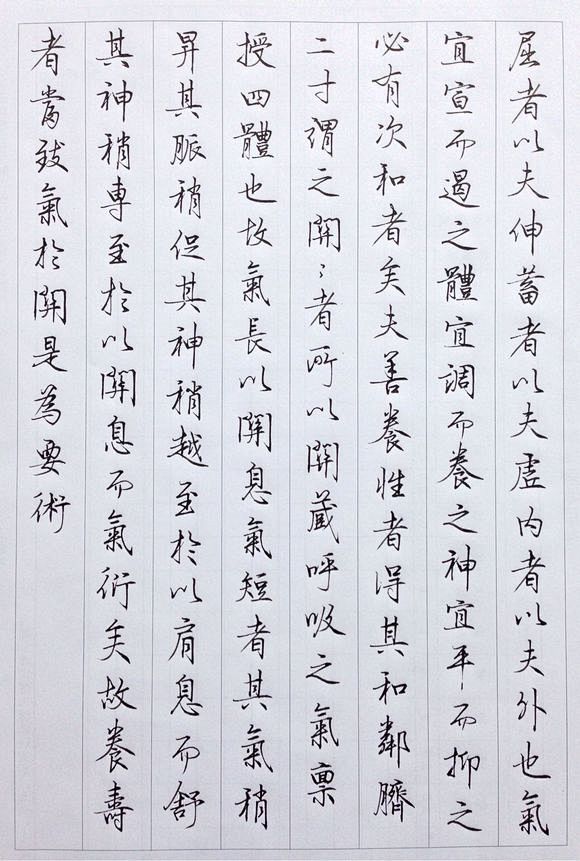 屈者以夫伸蓄者以夫虛内者以夫外也氣
宜宣而遏之體宜調而養之神宜平而抑之
必有次和者矣夫善養性者得其和鄰臍
二寸謂之關〻者所以關藏呼吸之氣稟
授四體也故氣長以關息氣短者其氣稍
昇其脈稍促其神稍越至於以肩息而舒
其神稍專至於以關息而氣衍矣故養壽
者當致氣於關是為要術